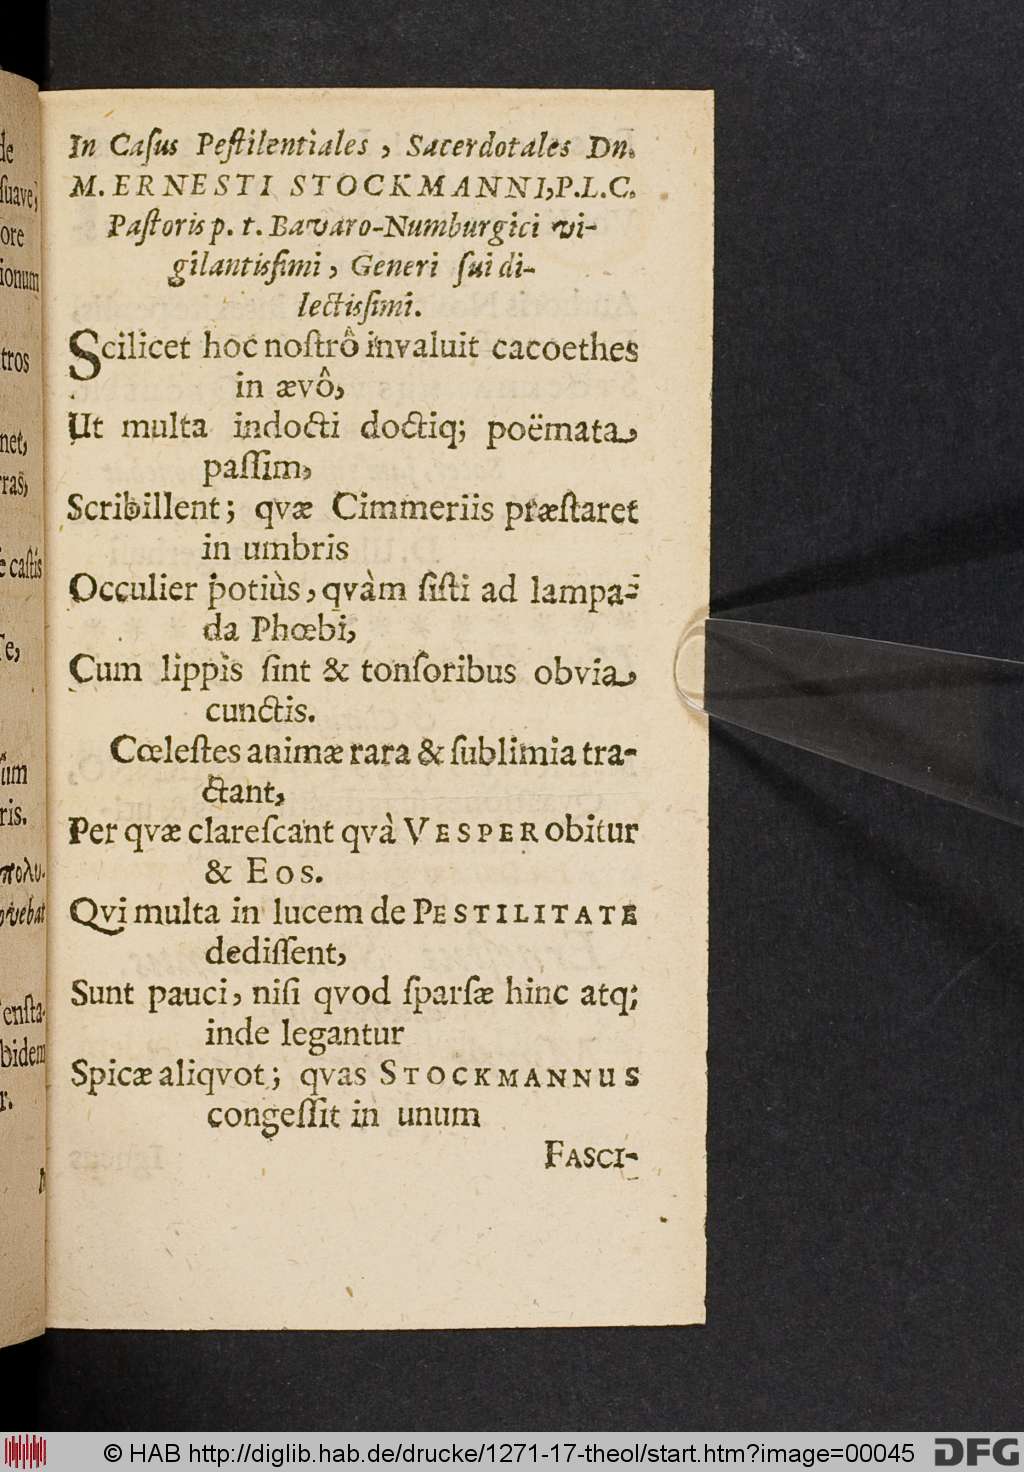 In Caſus Peſtilentiales, Sacerdotales Dn.
M. ERNESTI STOCKMANNI, P.L.C.
Paſtoris p. t. Bavaro-Numburgici vi-
gilantisſimi, Generi ſui di-
lectisſimi.
Scilicet hoc noſtrô invaluit cacoethes
in ævô,
Ut multa indocti doctiq; poëmata,
paſſim,
Scribillent; qvæ Cimmeriis præſtaret
in umbris
Occulier potiùs, qvàm ſiſti ad lampa-
da Phœbi,
Cum lippis ſint & tonſoribus obvia,
cunctis.
Cœleſtes animæ rara & ſublimia tra-
ctant,
Per qvæ clareſcant qvà VESPER obitur
& Eos.
Qvi multa in lucem de PESTILITATE
dediſſent,
Sunt pauci, niſi qvod ſparſæ hinc atq;
inde legantur
Spicæ aliqvot; qvas STOCKMANNUS
congeſſit in unum
FASCI-
de
ſuave,
ore
ionum
tros
net,
caſtis
ris.
πολυ-
bidem
r.
© HAB http://diglib.hab.de/drucke/1271-17-theol/start.htm?image=00045
DFG